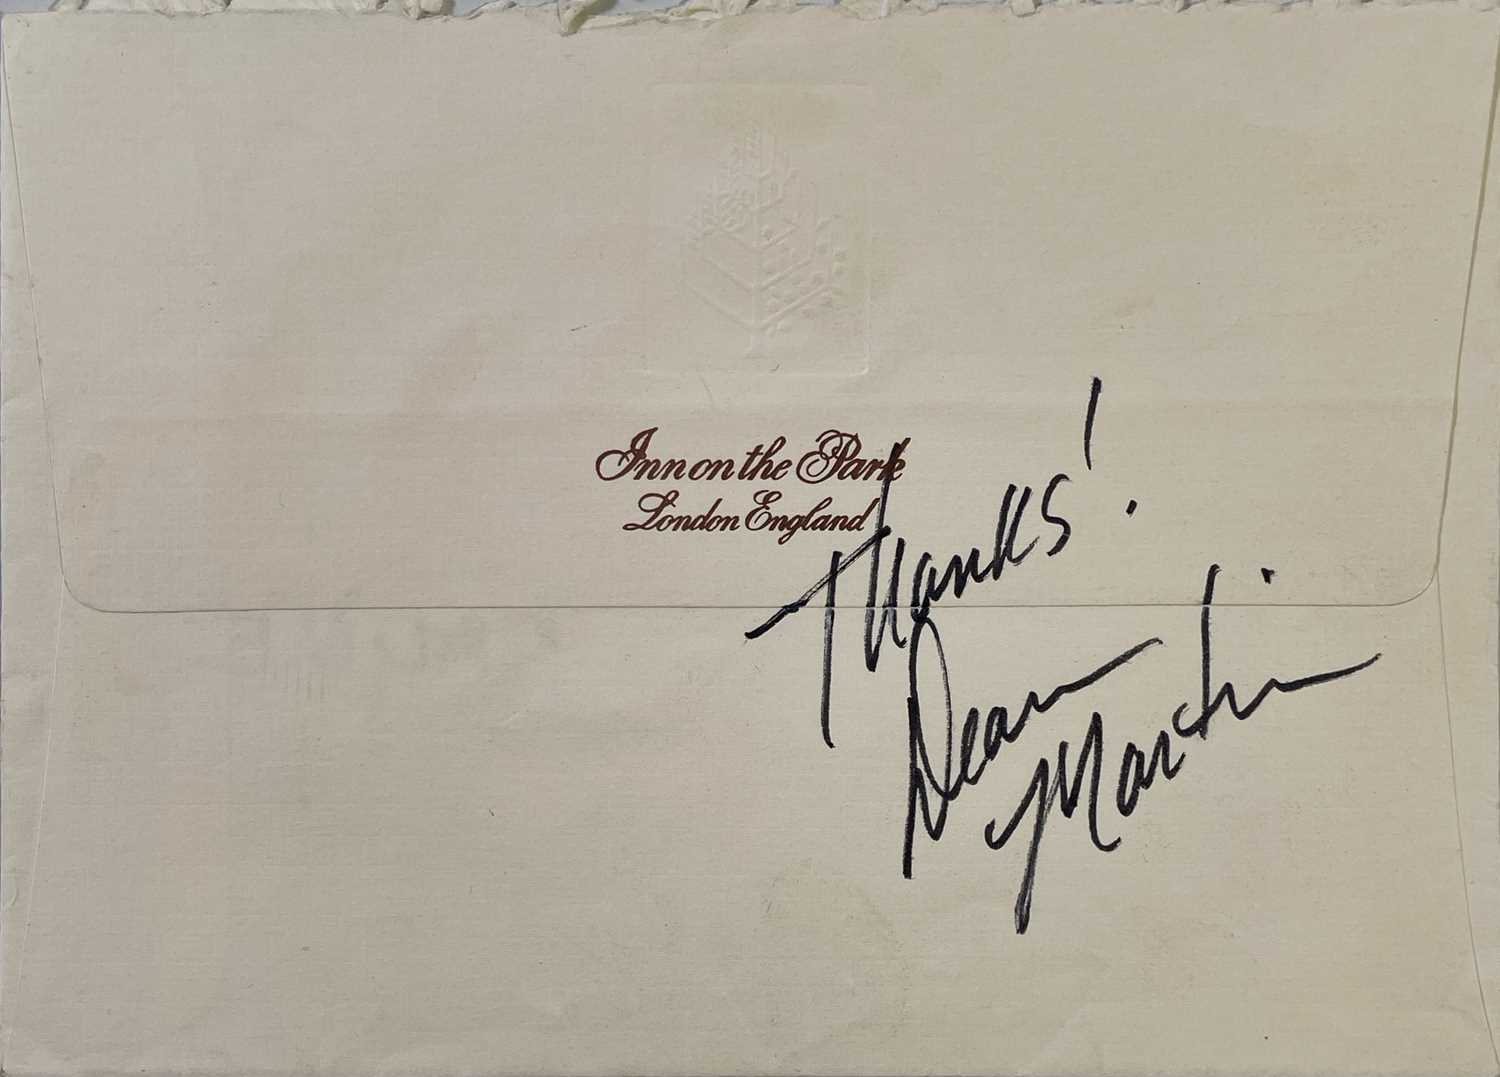 Inn on the Park
London England
Thanks!
Dean
Martin